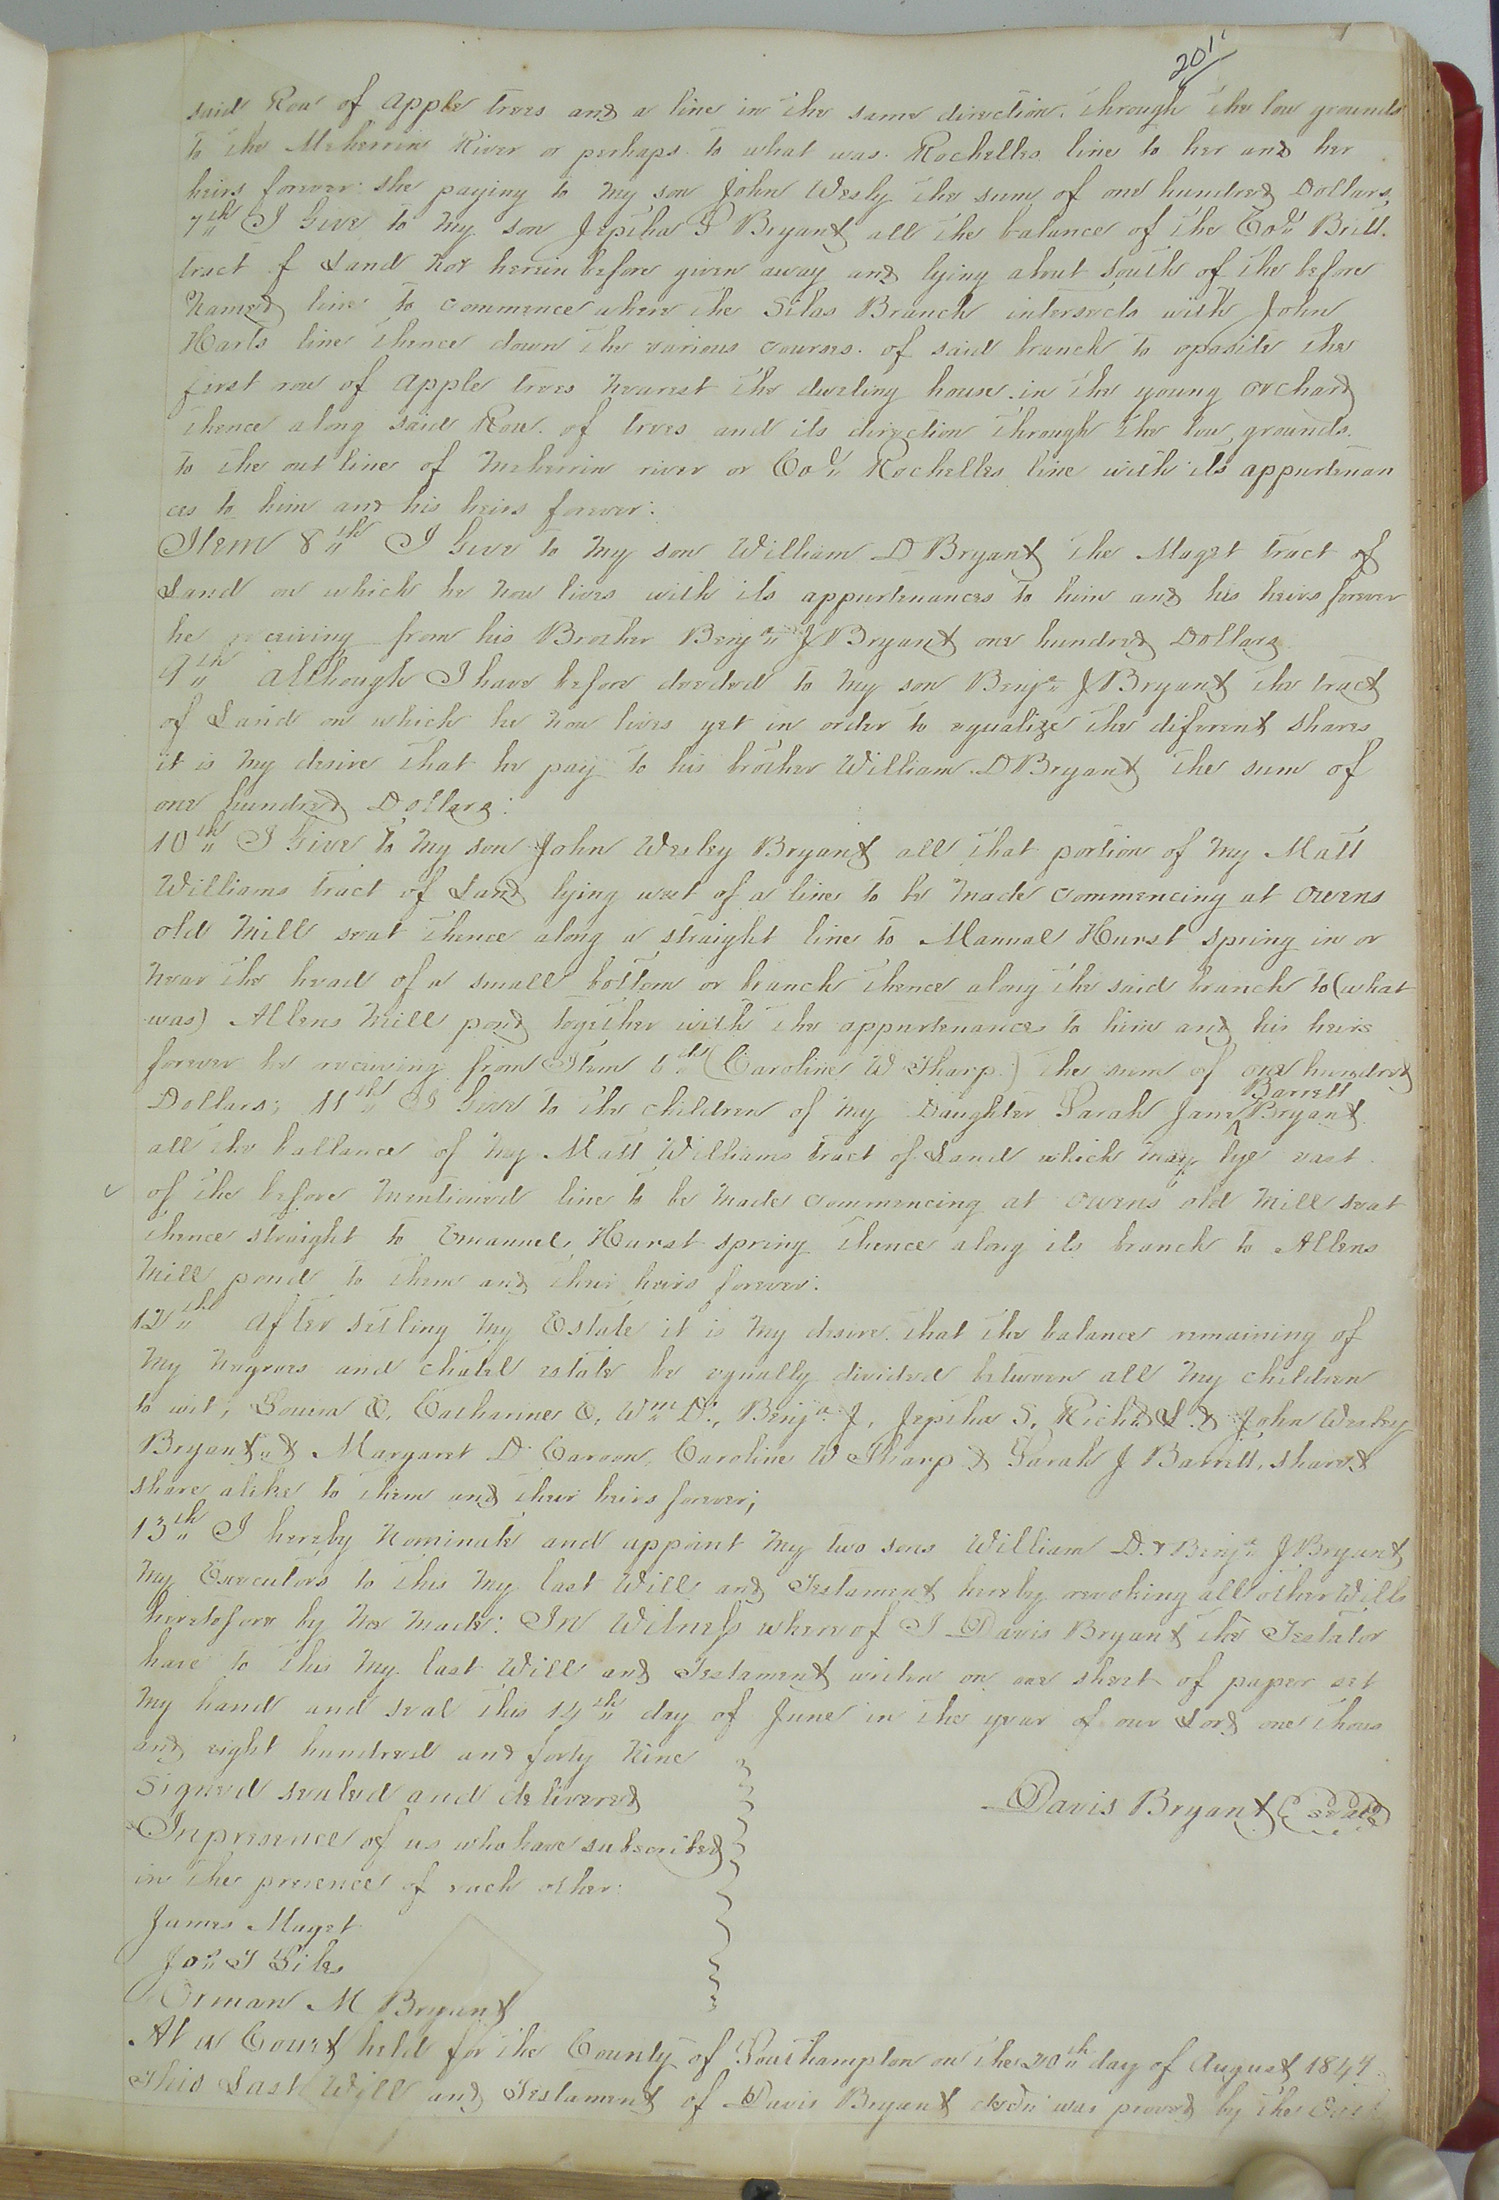 201
said Row of apple trees and a line in the same direction through the low grounds
to the Meherrin River or perhaps to what was Rochelles line to her and her
heirs forever: she paying to my son John Wesly the sum of one hundred Dollars,
7th I Give to my son Jeptha S Bryant all the balance of the Edd Britt
tract of Land not herein before given away and lying about south of the before
Named line to commence where the Silas Branch intersects with John
Harts line thence down the various courses of said branch to oposite the
first row of apple trees nearest the dweling house in the young orchard
thence along said Row of trees and its direction through the low grounds
to the out line of Meherrin river or Col Rochelles line with its appurtenan
ces to him and his heirs forever:
Item 8th I Give to my son William D Bryant the Maget tract of
Land on which he now lives with its appurtenances to him and his heirs forever
he receiving from his Brother Benja J Bryant one hundred Dollars
9th although I have before deeded to my son Benja J Bryant the tract
of Land on which he now lives yet in order to equalize the diferent shares
it is my desire that he pay to his brother William D Bryant the sum of
one hundred Dollars:
10th I Give to my son John Wesley Bryant all that portion of my Matt
Williams tract of Land lying west of a line to be made commencing at Owens
old Mill seat thence along a straight line to Manual Hurst spring in or
near the head of a small bottom or branch thence along the said branch to (what
was) Allens Mill pond together with the appurtenances to him and his heirs
forever he receiving from Item 6th (Caroline W Tharp) the sum of one hundred
Dollars; 11th I Give to the children of my Daughter Sarah Jane ^ Barrett Bryant
all the ballance of my Matt Williams tract of Land which may lye east
of the before mentioned line to be made commencing at Owens old Mill seat
thence straight to Emanuel Hurst spring thence along its branch to Allens
Mill pond to them and their heirs forever:
12th after setling my Estate it is my desire that the balance remaining of
my negroes and chatel estate be equally divided between all my children
to wit; Louisa E, Catharine E, Wm D., Benja J, Jeptha S, Richd L & John Wesley
Bryant & Margaret D Caroon, Caroline W Tharp & Sarah J Barrett, share &
share alike to them and their heirs forever;
13th I hereby Nominate and appoint my two sons William D. & Benja J Bryant
my Executors to this my last Will and Testament hereby revoking all other Wills
heretofore by me made: In Witness whereof I Davis Bryant the Testator
have to this my last Will and Testament writen on one sheet of paper set
my hand and seal this 14th day of June in the year of our Lord one thous
and eight hundred and forty nine
Signed sealed and delivered
Davis Bryant (Seal)
In presence of us who have subscribed
in the presence of each other:
James Maget
Jos T Siles
Orman M Bryant
At a Court held for the County of Southampton on the 20th day of August 1849
This Last Will and Testament of Davis Bryant decd was proved by the